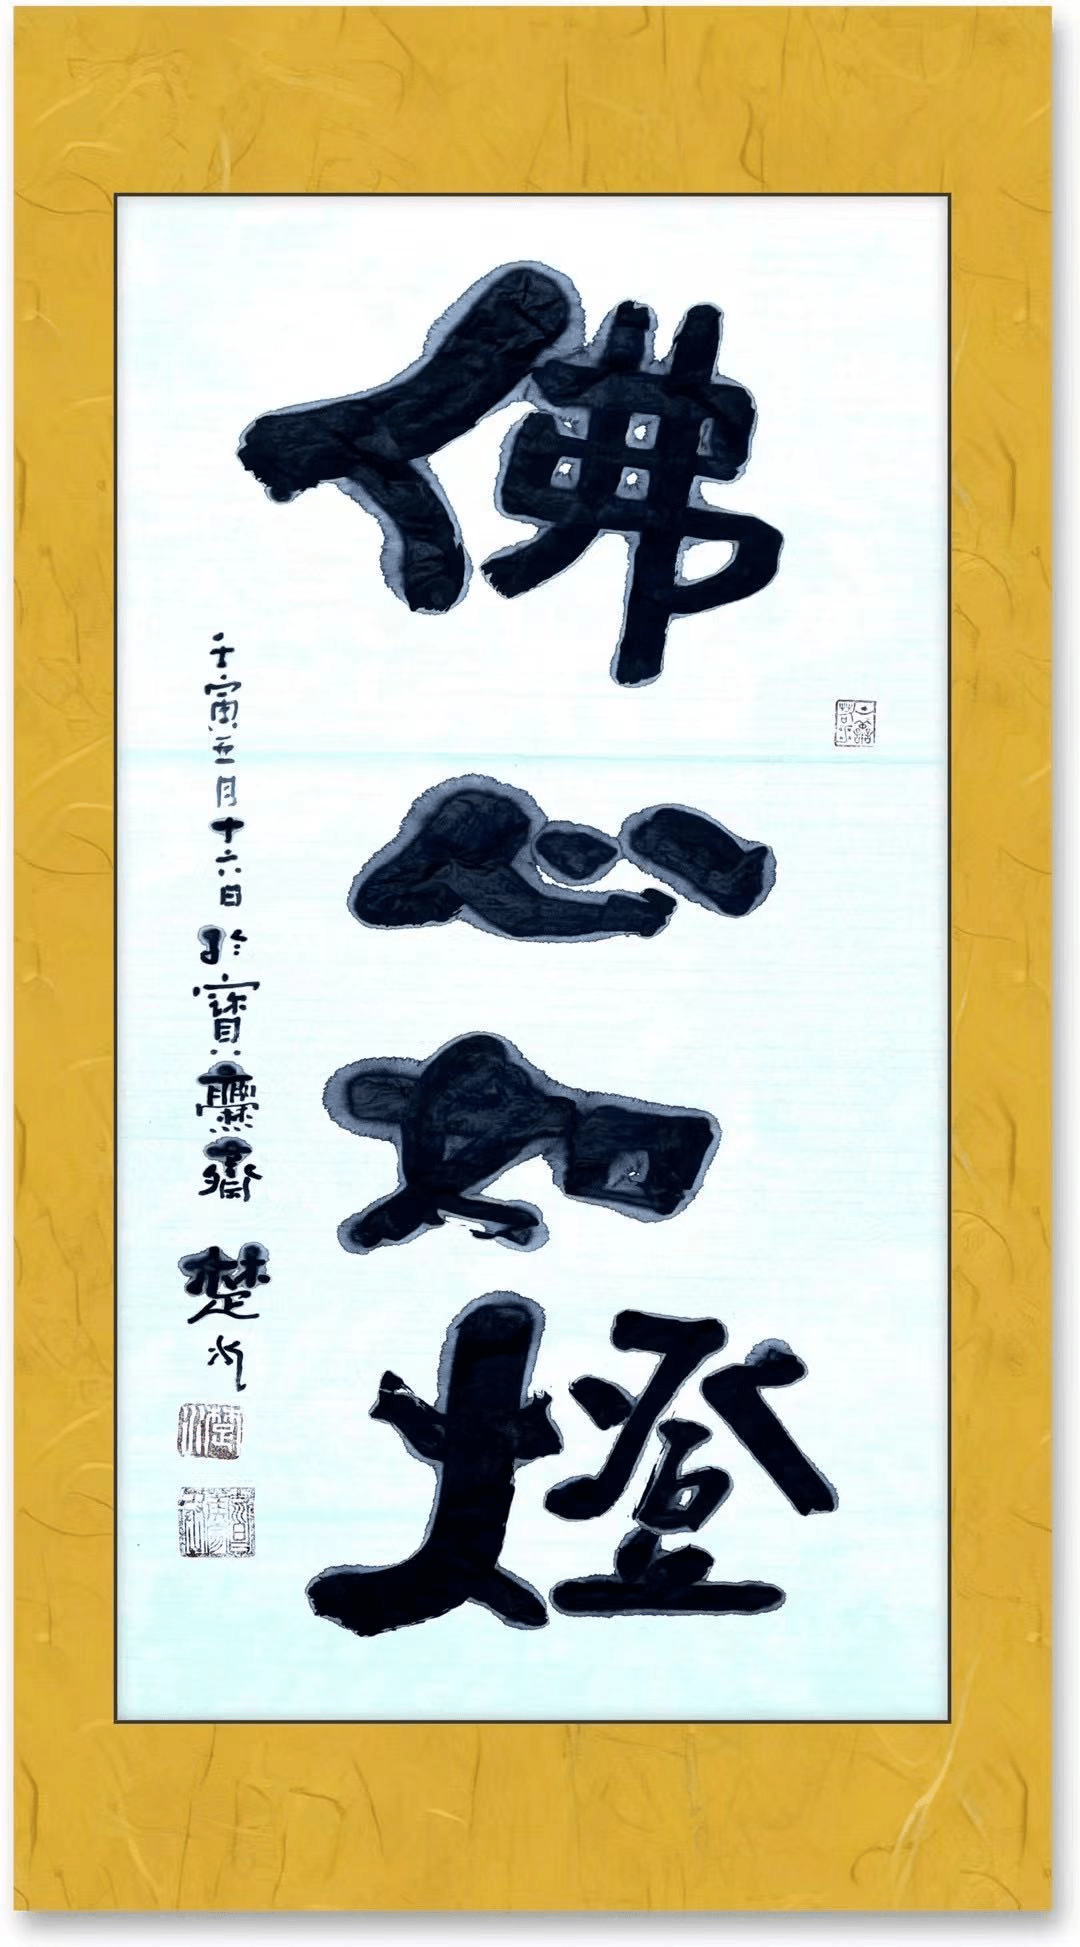 佛心如燈
壬寅五月十六日於寶爨齋 楚